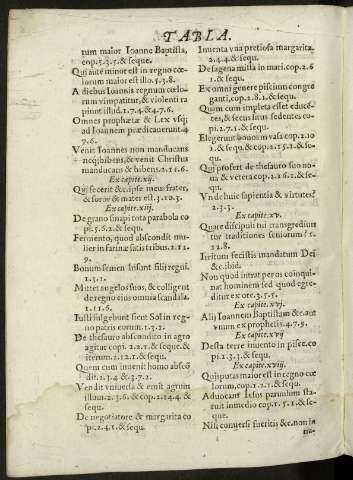 TABLA.
rum maior Ioanne Baptista,
cop. 5.3.5. & seque.
Qui autē minor est in regno cœ-
lorum maior est illo. 5.3.8.
A diebus Ioannis regnum cœlo-
rum vim patitur, & violenti ra
piunt illud. 1.7.4. & 4.7.6.
Omnes prophætæ & Lex vsq;
ad Ioannem prædicauerunt. 4
7.6.
Venit Ioannes non manducans
neq; bibens, & venit Christus
manducans & bibens. 2.11.6.
Ex capite. xij.
Qui fecerit &c. ipse meus frater,
& soror & mater est. 3.10.5.
Ex capite. xiij.
De grano sinapi tota parabola co
pi. 5.6.2. & sequ.
Fermento, quod abscondit mu-
lier in farinæ satis tribus. 2.12.
9.
Bonum semen hi sunt filij regni.
1.3.1.
Mittet angelos suos, & colligent
de regno eius omnia scandala.
1.11.6.
Iusti fulgebunt sicut Sol in reg-
no patris eorum. 1.3.2.
De thesauro abscondito in agro
agitur copi. 2.2.1. & seque. &
iterum. 2.12.1. & sequ.
Quem cum inuenit homo abscō
dit. 2.3.4. & 3.7.2.
Vendit vniuersa & emit agrum
illum. 2.3.6. & cop. 2.14.4 &
sequ.
De negotiatore & margarita co
pi. 2.4.1. & sequ.
Inuenta vna pretiosa margarita.
2.4.4. & sequ.
De sagena missa in mari. cop. 2.6
1. & sequ.
Ex omni genere piscium congre
ganti, cop. 2.8.1. & sequ.
Quam cum impleta esset educē-
tes, & secus litus sedentes co-
pi. 2.7.1. & sequ.
Elegerunt bonos in vasa cop. 2.10
1. & cop. 2.20.1. & 5.2.1. &
sequ.
Qui profert de thesauro suo no-
ua & vetera cop. 2.16.1. & c.
sequ.
Vnde huic sapientia & virtutes?
2.3.3.
Ex capite. xv.
Quare discipuli tui transgrediun
tur traditiones seniorum? 5.
12.8.
Irritum fecistis mandatum Dei
&c. ibid.
Non quod intrat per os coinqui
nat hominem sed quod egre-
ditur ex ore. 3.7.5.
Ex capite. xvj.
Alij Ioannem Baptistam &c. aut
vnum ex prophetis. 4.7.9.
Ex capite. xvij.
Desta terre inuento in pisce. co
pi. 2.3.3. & sequ.
Ex capite. xviij.
Quis putas maior est in regno cœ
lorum, cop. 2.1.1. & sequ.
Aduocans Iesus paruulum sta-
tuit in medio cop. 1.5.1. & se-
que.
Nisi conuersi fueritis &c. non in